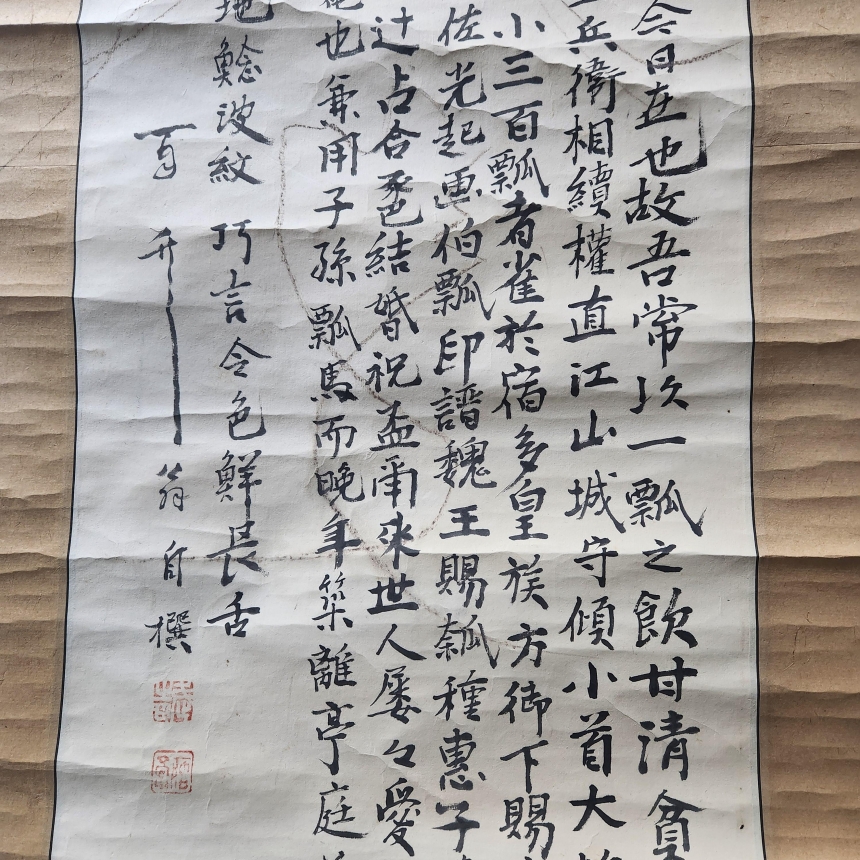 今日在也故吾常以一瓢之飲甘清貧
兵衛相續權直江山城守傾小首大
小三百瓢者雀於宿多皇族方御下賜
佐光起画伯瓢印譜魏王賜瓠種惠子
辻占合巹結婚祝盃甬来世人屡々愛
也兼用子孫瓢馬而晩年築離亭庭
地鯰波紋巧言令色鮮長舌
百舟翁自撰